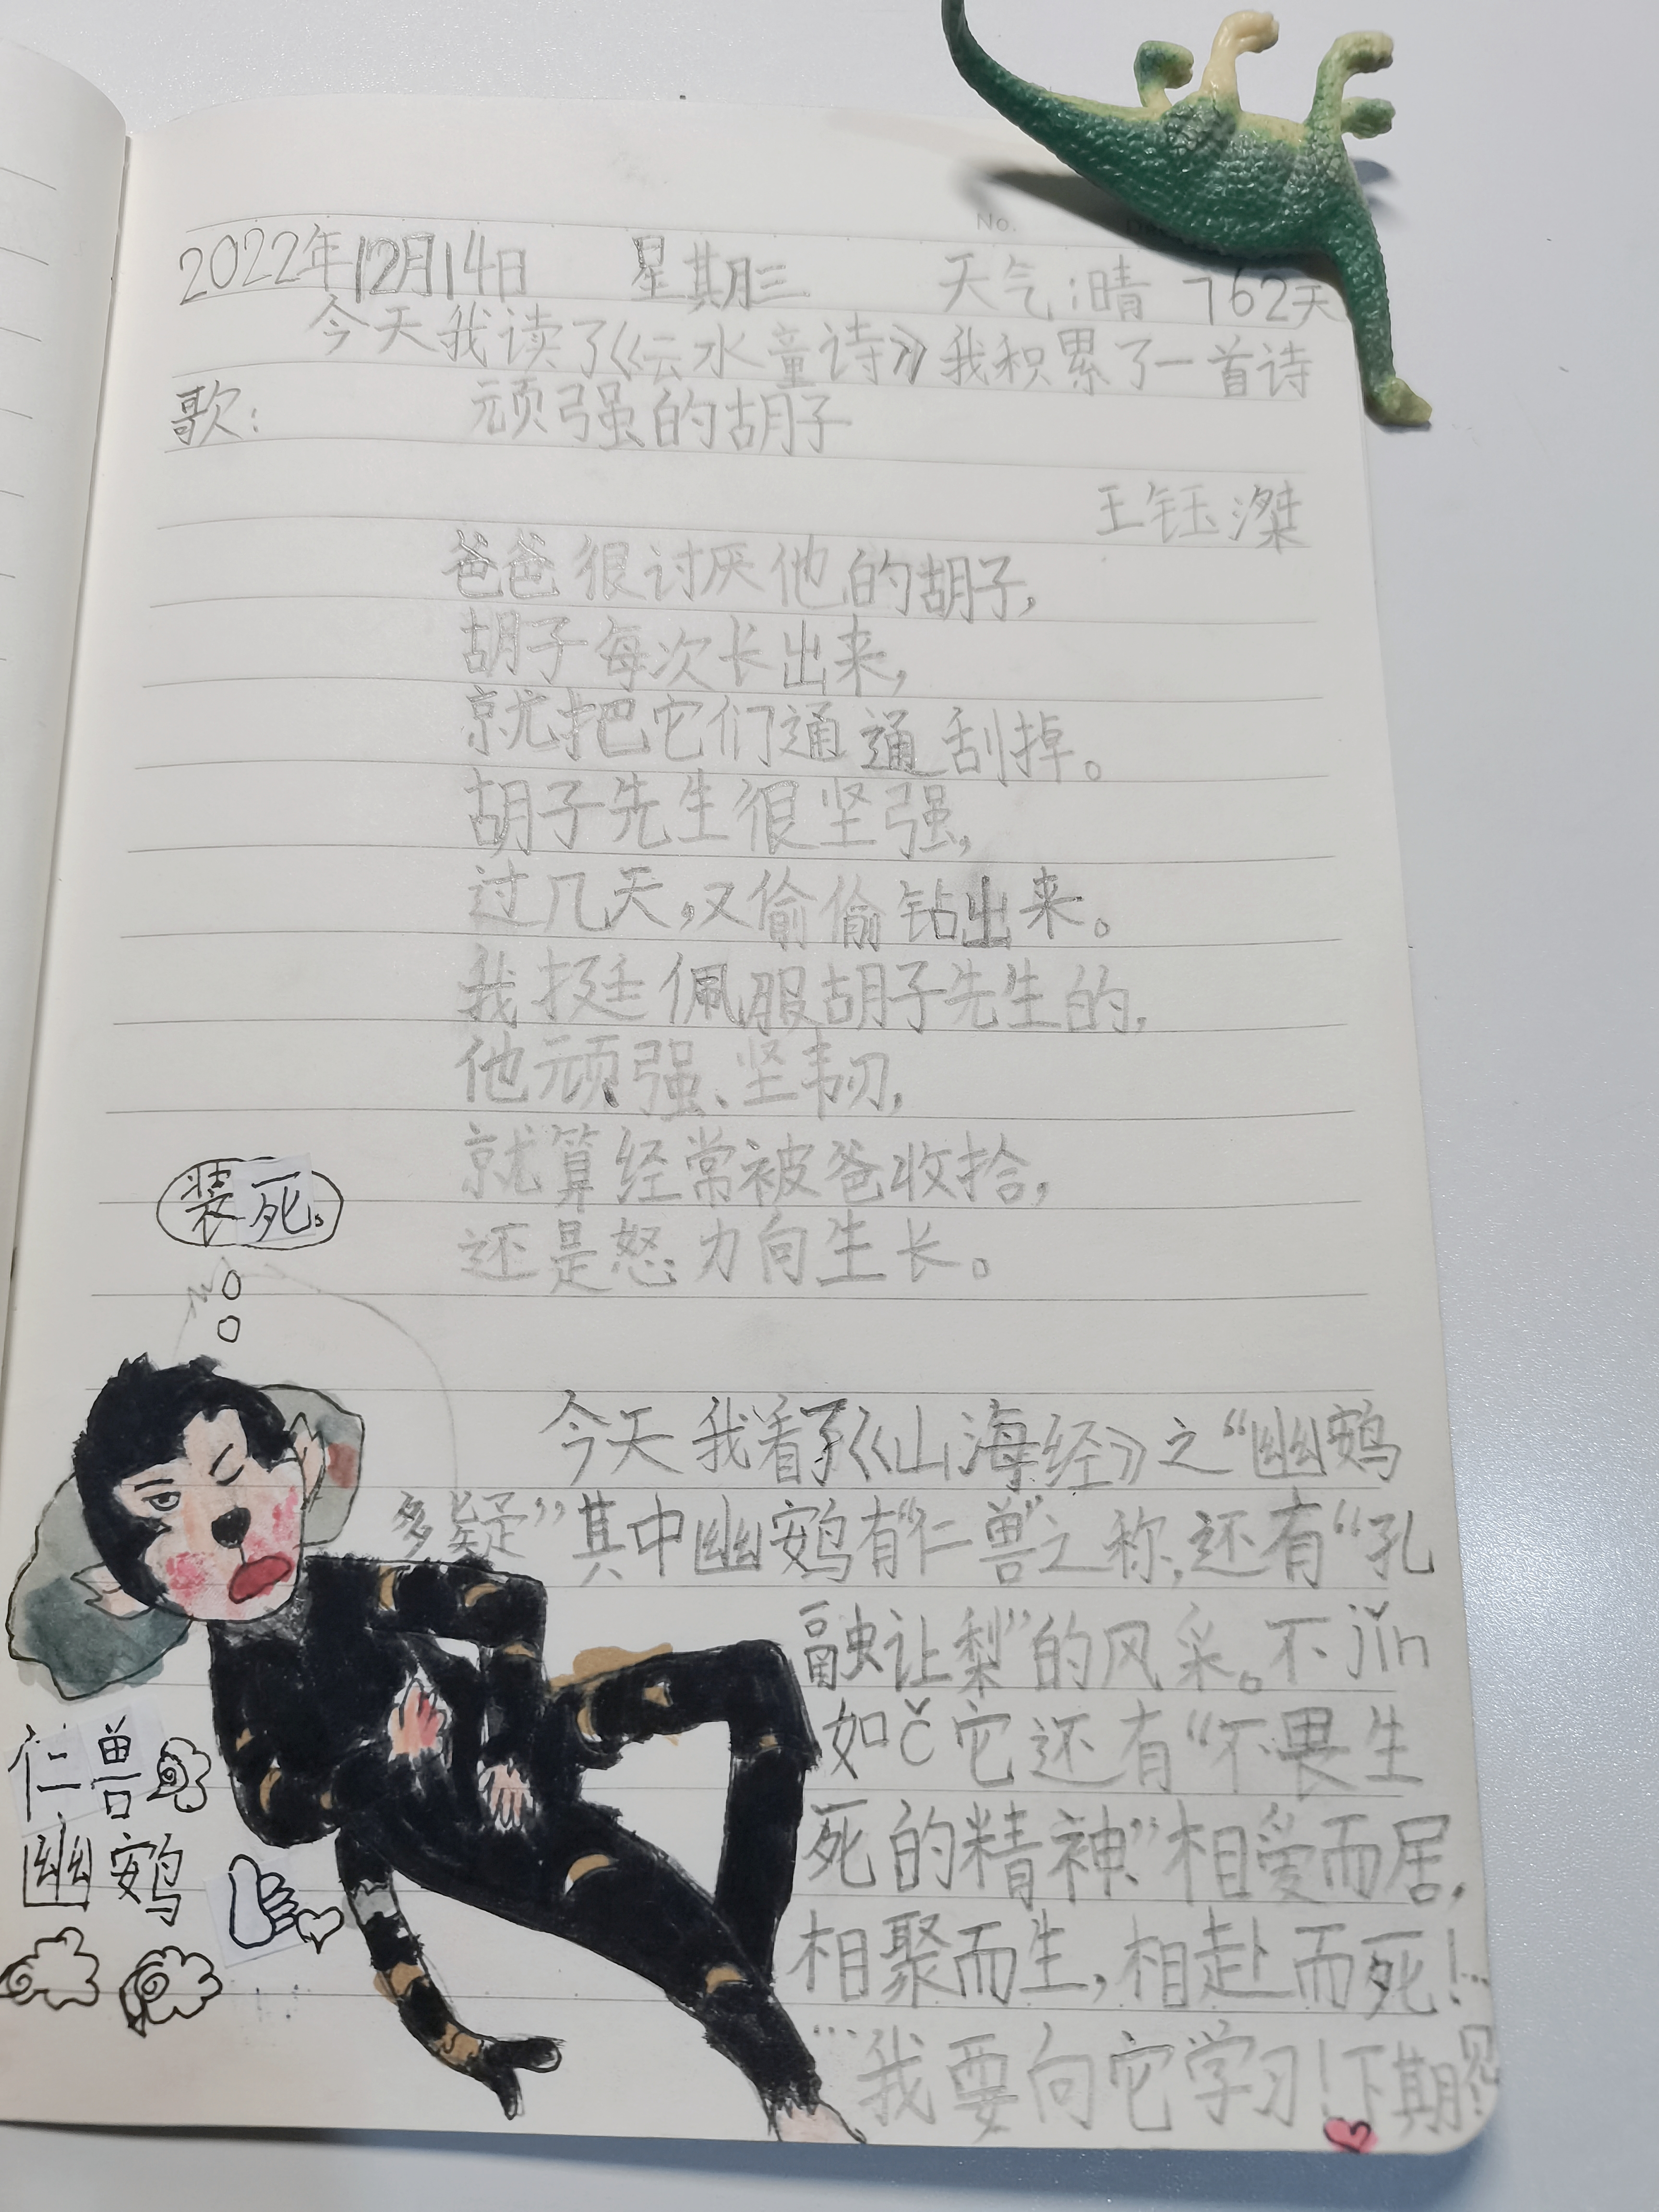 No.
2022年12月14日 星期三 天气:晴 762天
今天我读了《云水童诗》我积累了一首诗
歌: 顽强的胡子
王钰滐
爸爸很讨厌他的胡子,
胡子每次长出来,
就把它们通通刮掉。
胡子先生很坚强,
过几天,又偷偷钻出来。
我挺佩服胡子先生的,
他顽强、坚韧,
就算经常被爸收拾,
还是怒力向生长。
装死。
今天我看了《山海经》之“幽鴳
多疑”其中幽鴳有“仁兽”之称,还有“孔
融让梨”的风采。不jǐn
如cǐ它还有“不畏生
死的精神”相爱而居,
相聚而生,相赴而死!…
…我要向它学习!下期见
仁兽
幽鴳